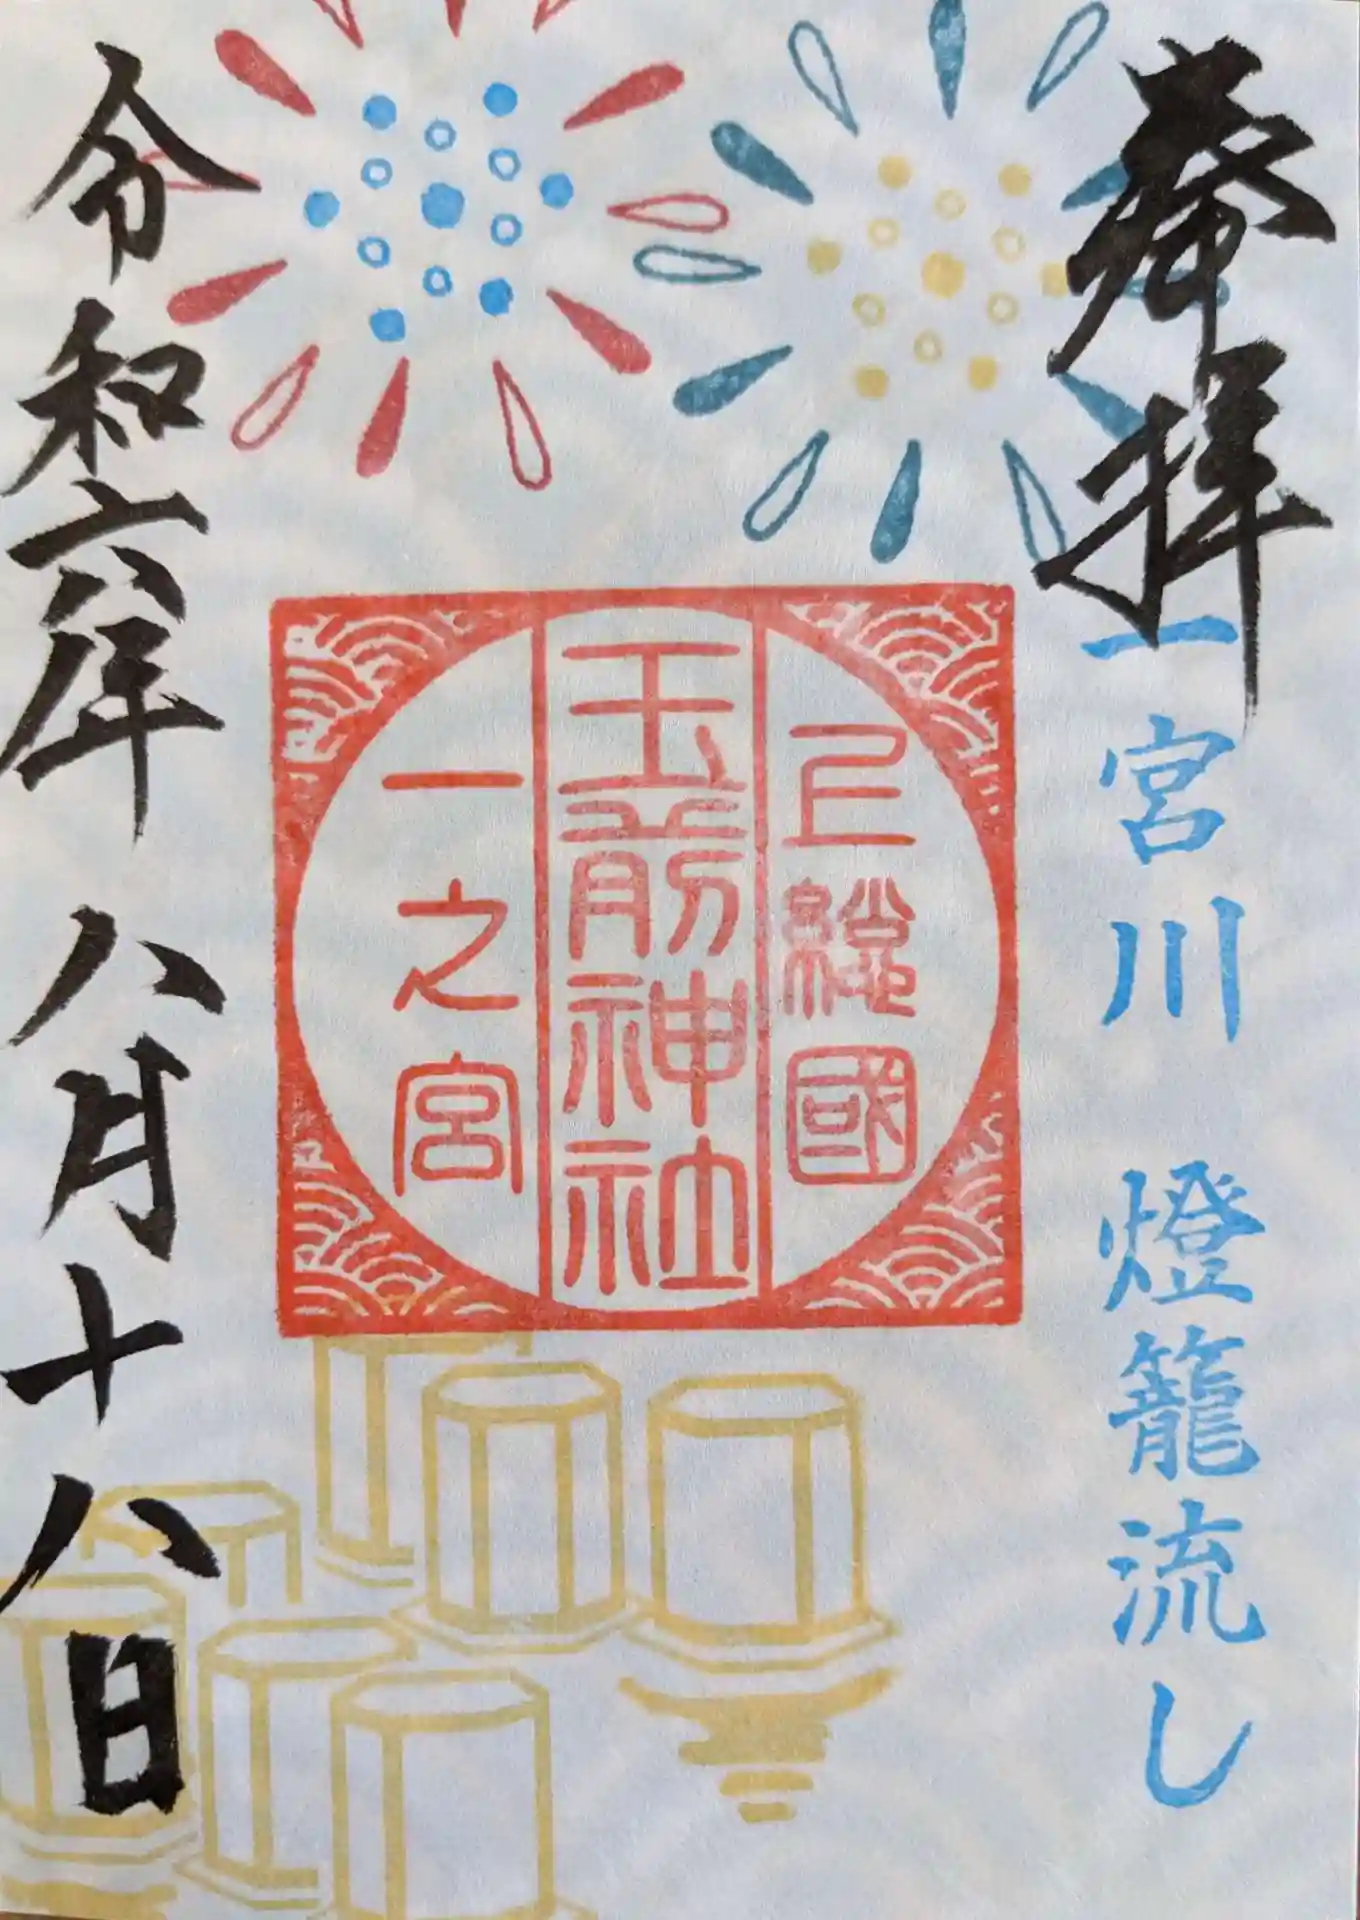 奉拝
一宮川 燈籠流し
上總國
玉前神社
一之宮
令和六年八月十八日